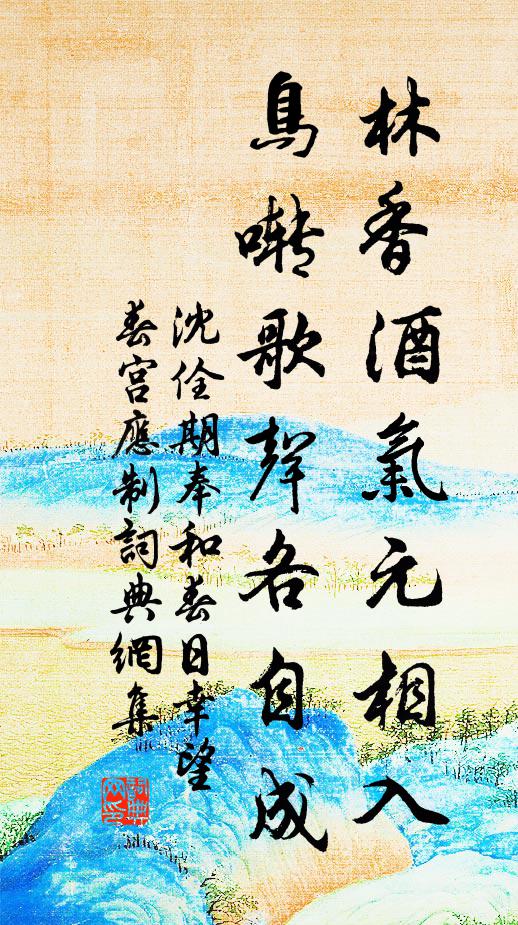 林香酒氣元相入
鳥囀歌聲各自成
沈佺期奉和春日幸望
春宮應制詞典網集